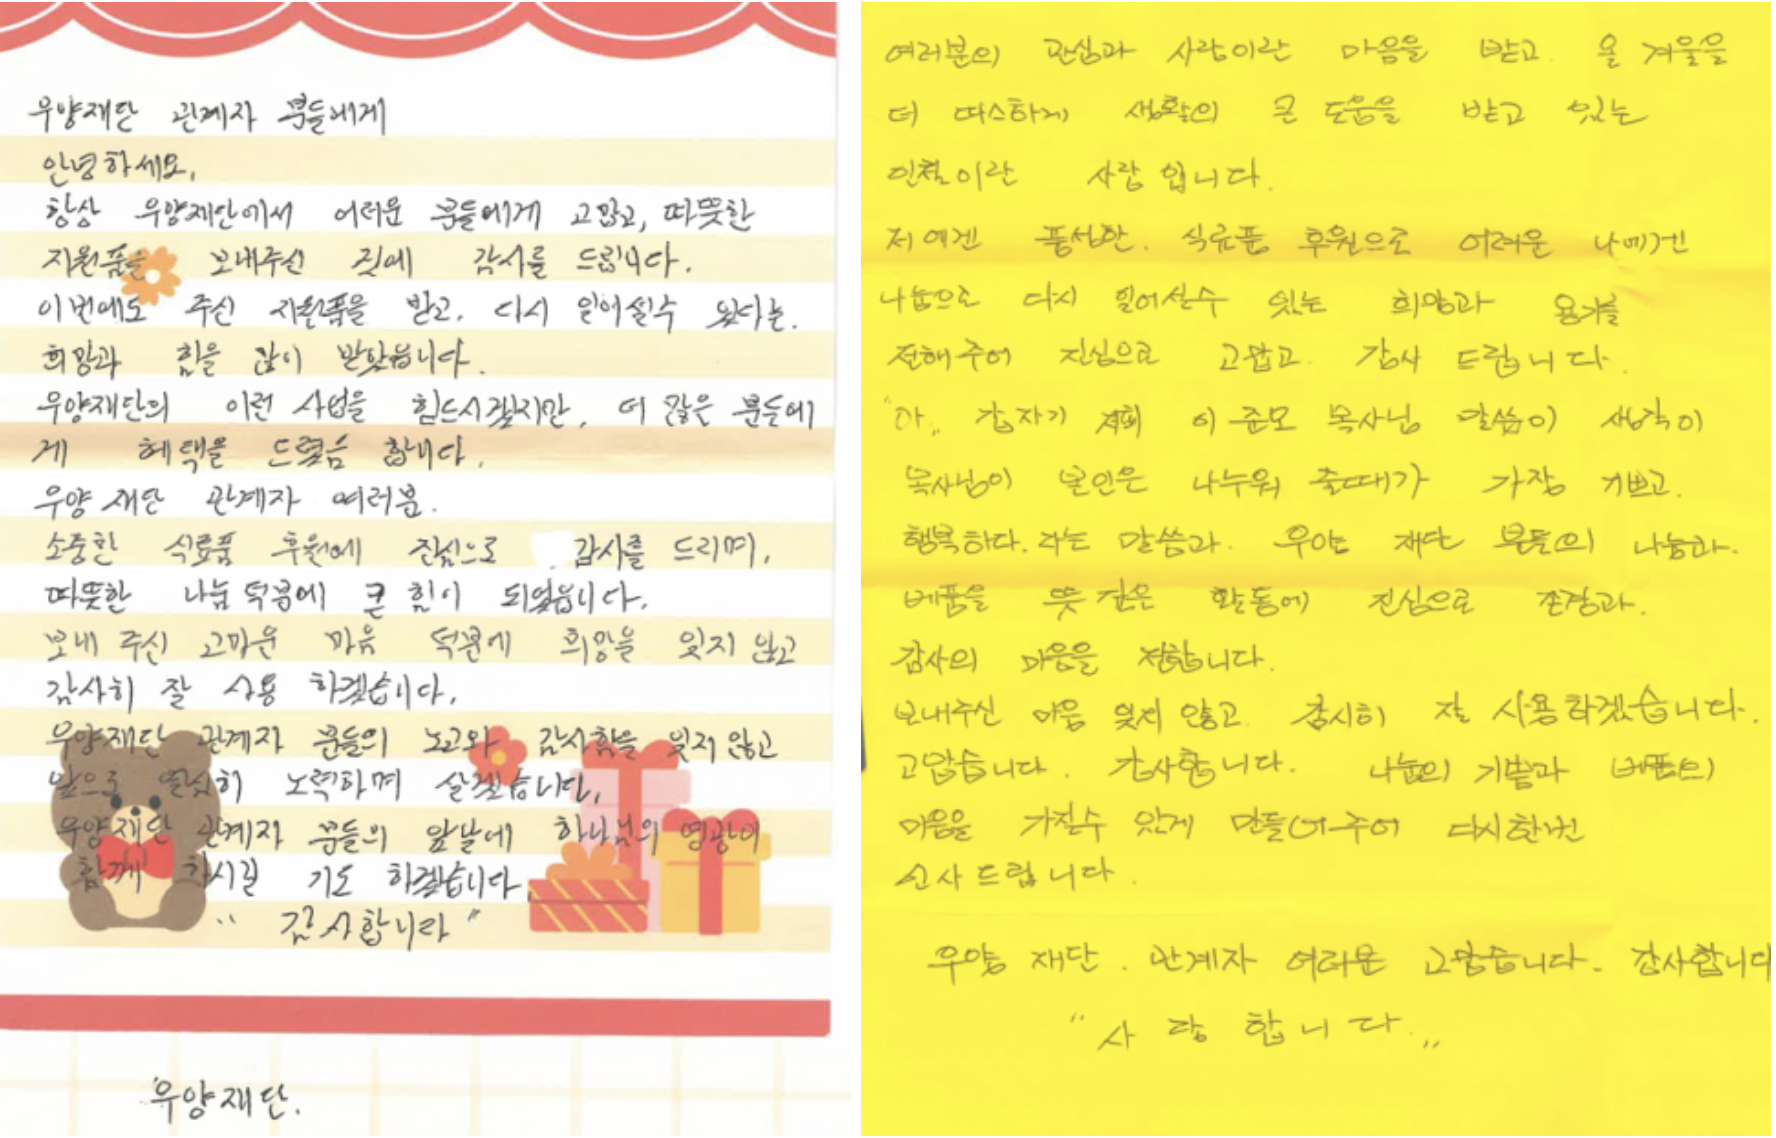 우양재단 관계자 분들에게
안녕하세요,
항상 우양재단에서 어려운 분들에게 고맙고, 따뜻한
지원품을 보내주신 것에 감사를 드립니다.
이번에도 주신 지원품을 받고, 다시 일어설수 있다는.
희망과 힘을 많이 받았습니다.
우양재단의 이런 사업을 힘드시겠지만, 더 많은 분들에
게 혜택을 드렸음 합니다.
우양 재단 관계자 여러분.
소중한 식료품 후원에 진심으로 감사를 드리며,
따뜻한 나눔 덕분에 큰 힘이 되었습니다.
보내 주신 고마운 마음 덕분에 희망을 잊지 않고
감사히 잘 사용 하겠습니다.
우양재단 관계자 분들의 노고와 감사함을 잊지 않고
앞으로 열심히 노력하며 살겠습니다,
우양재단 관계자 분들의 앞날에 하나님의 영광이
함께 하시길 기도 하겠습니다
" 감사합니다 "
우양재단.
여러분의 관심과 사랑이란 마음을 받고. 올 겨울을
더 따스하게 생활의 큰 도움을 받고 있는
인철이란 사람 입니다.
저에겐 풍성한. 식료품 후원으로 어려운 나에겐
나눔으로 다시 일어설수 있는 희망과 용기를
전해주어 진심으로 고맙고. 감사 드립니다.
"아" 갑자기 이준모 목사님 말씀이 생각이
목사님이 본인은 나누워 줄때가 가장 기쁘고.
행복하다. 라는 말씀과. 우양 재단 분들의 나눔과.
베품을 뜻 깊은 활동에 진심으로 존경과.
감사의 마음을 전합니다.
보내주신 마음 잊지 않고. 감시히 잘 사용하겠습니다.
고맙습니다. 감사합니다. 나눔의 기쁨과 베품의
마음을 가질수 있게 만들어주어 다시한번
드립니다.
우양 재단. 관계자 여러분 고맙습니다. 감사합니다
"사랑합니다."